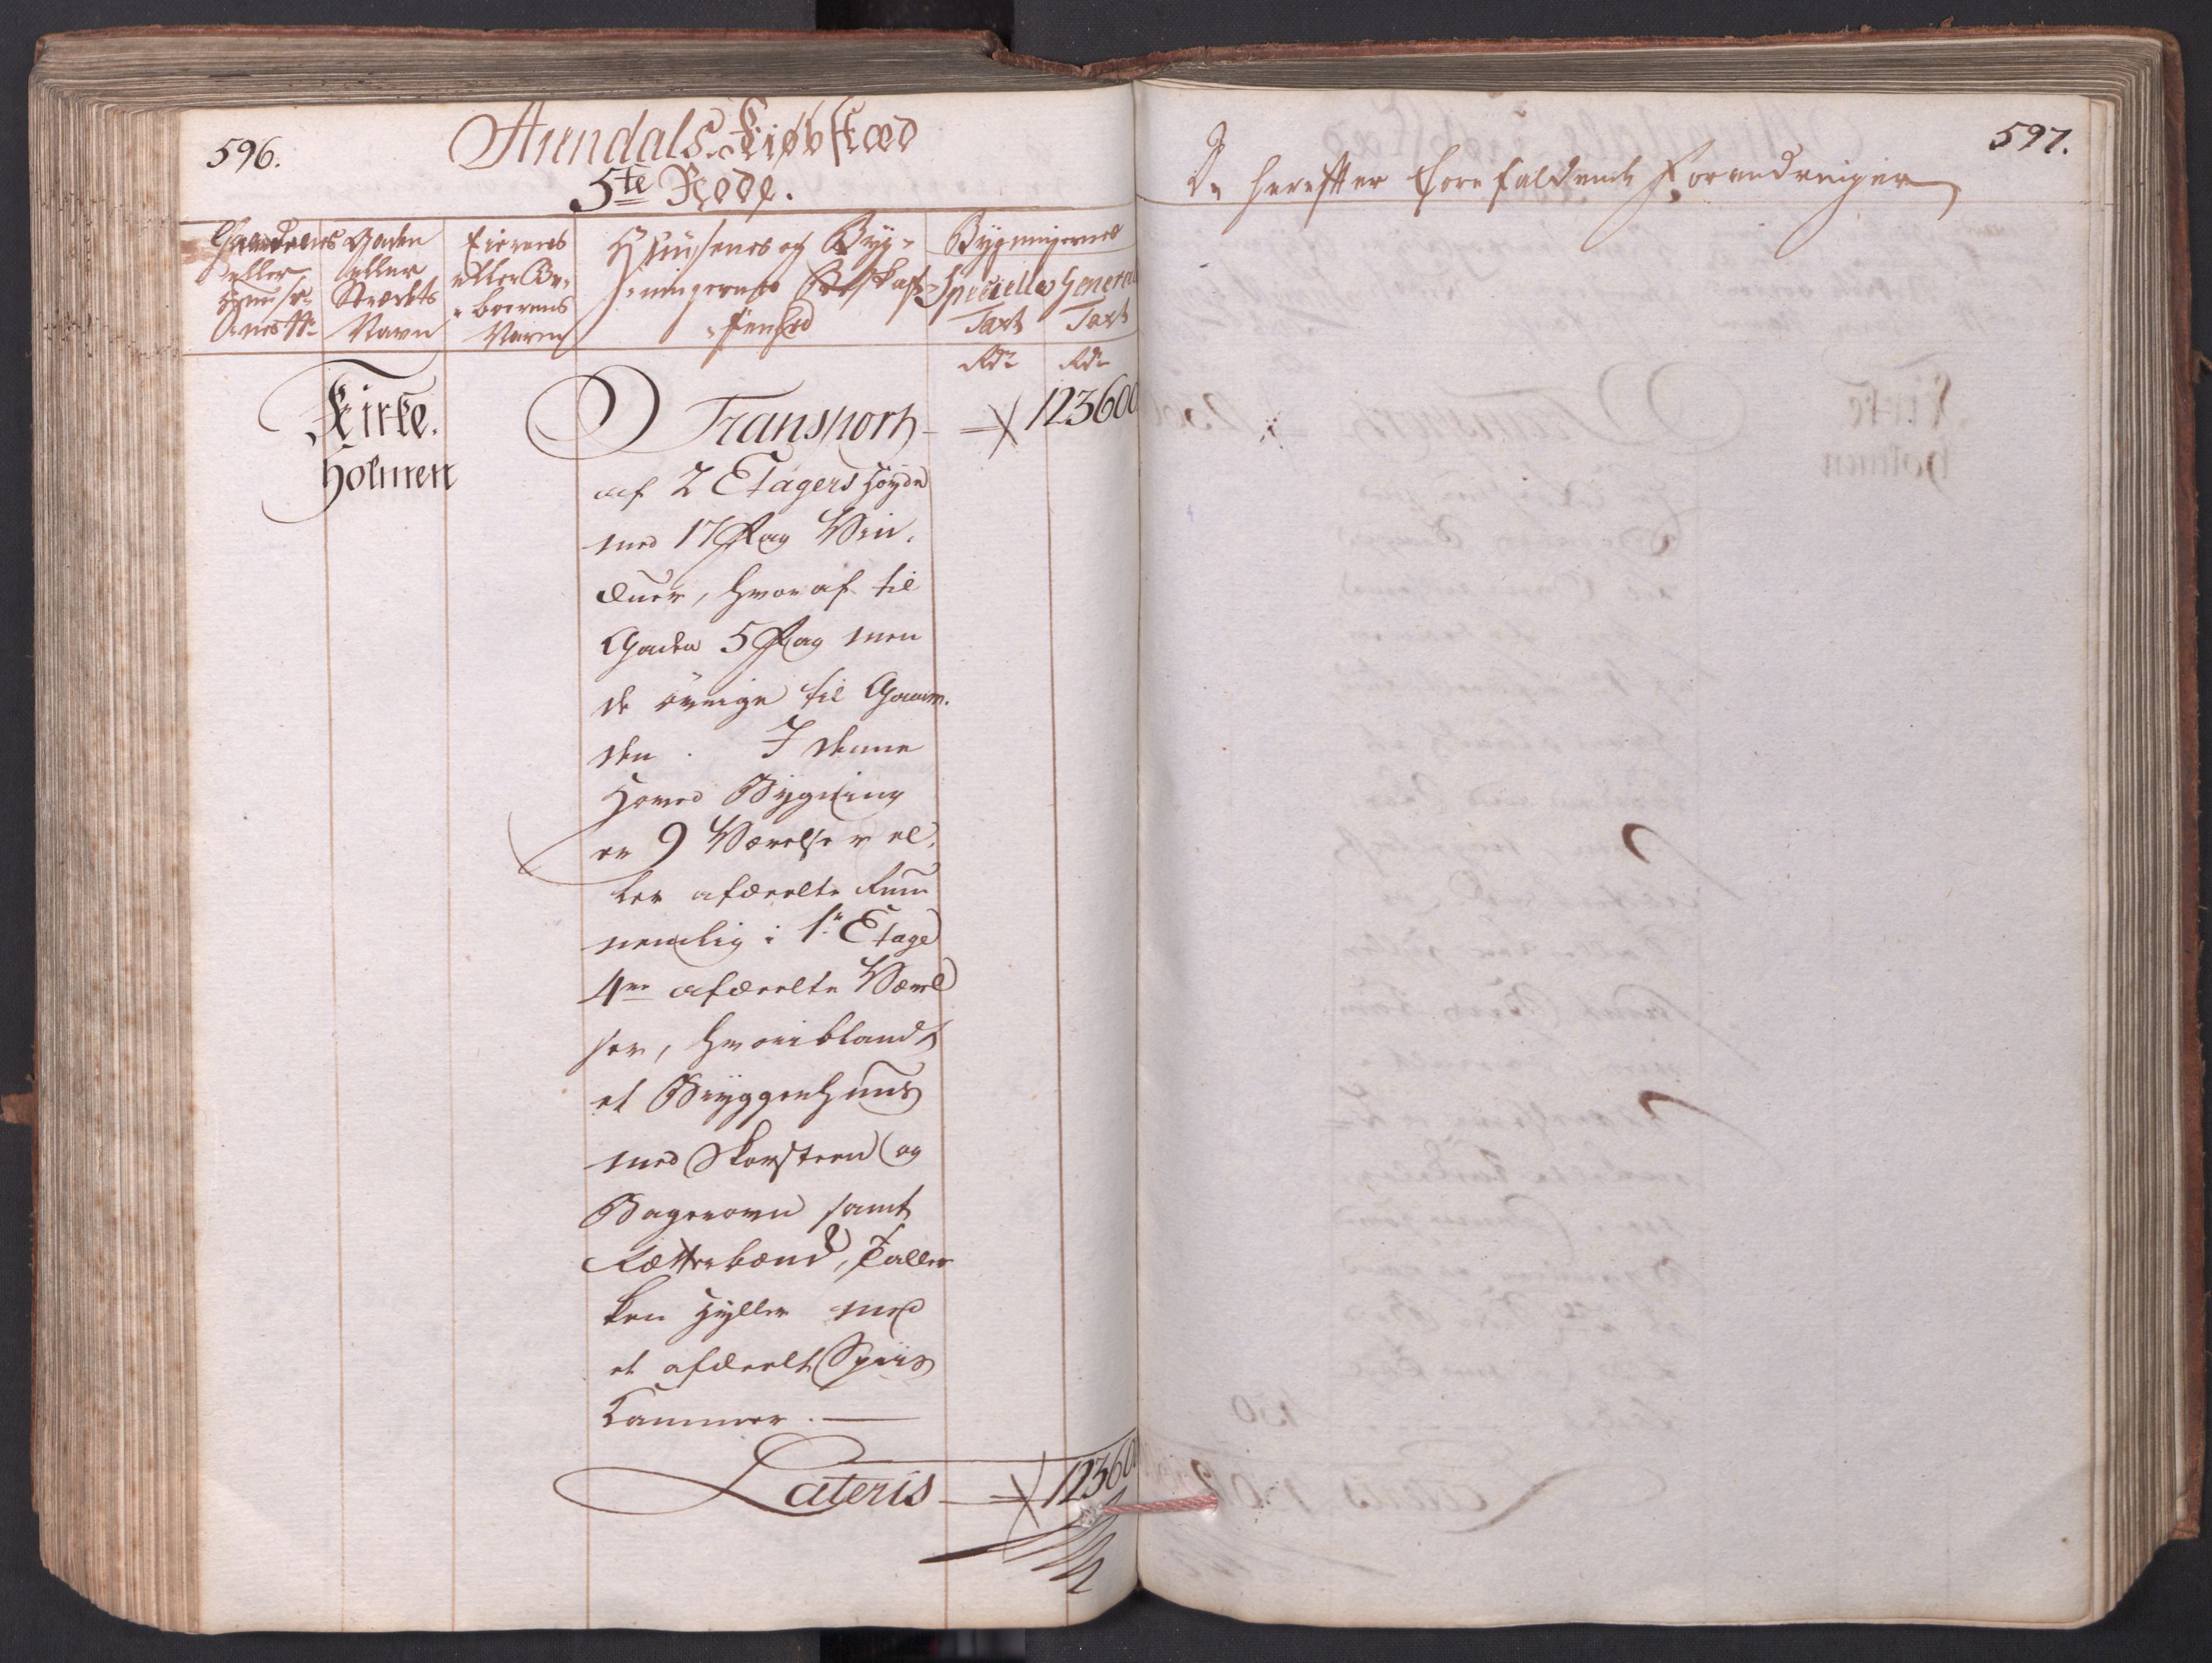 596.
Arendals Kiøbstæd
5te Rode.
Gaardens
eller
Huuse-
nes No
Gaden
eller
Strædets
Navn
Eierens
eller Be-
boerens
Navn
Huusenes og Byg-
ningernes Beskaf-
fenhed
Bygningernes
Specielle
Taxt
Generale
Taxt
Rdr
Rdr
Kirke-
holmen
Transport
123600
af 2 Etagers Høyde
med 17 Fag Vin-
duer, hvoraf til
Gaden 5 Fag men
de øvrige til Gaar-
den. I denne
Hoved Bygning
er 9 Værelser el-
ler afdeelte Rum
nemlig i 1te Etage
4re afdeelte Værel
ser, hvoriblandt
et Bryggerhuus
med Skorsteen og
Bageroven samt
Rættebænd, Taller
ken Hyller med
et afdeelt Spiis
Kammer.
Lateris
123600
597.
De herefter forefaldende Forandringer